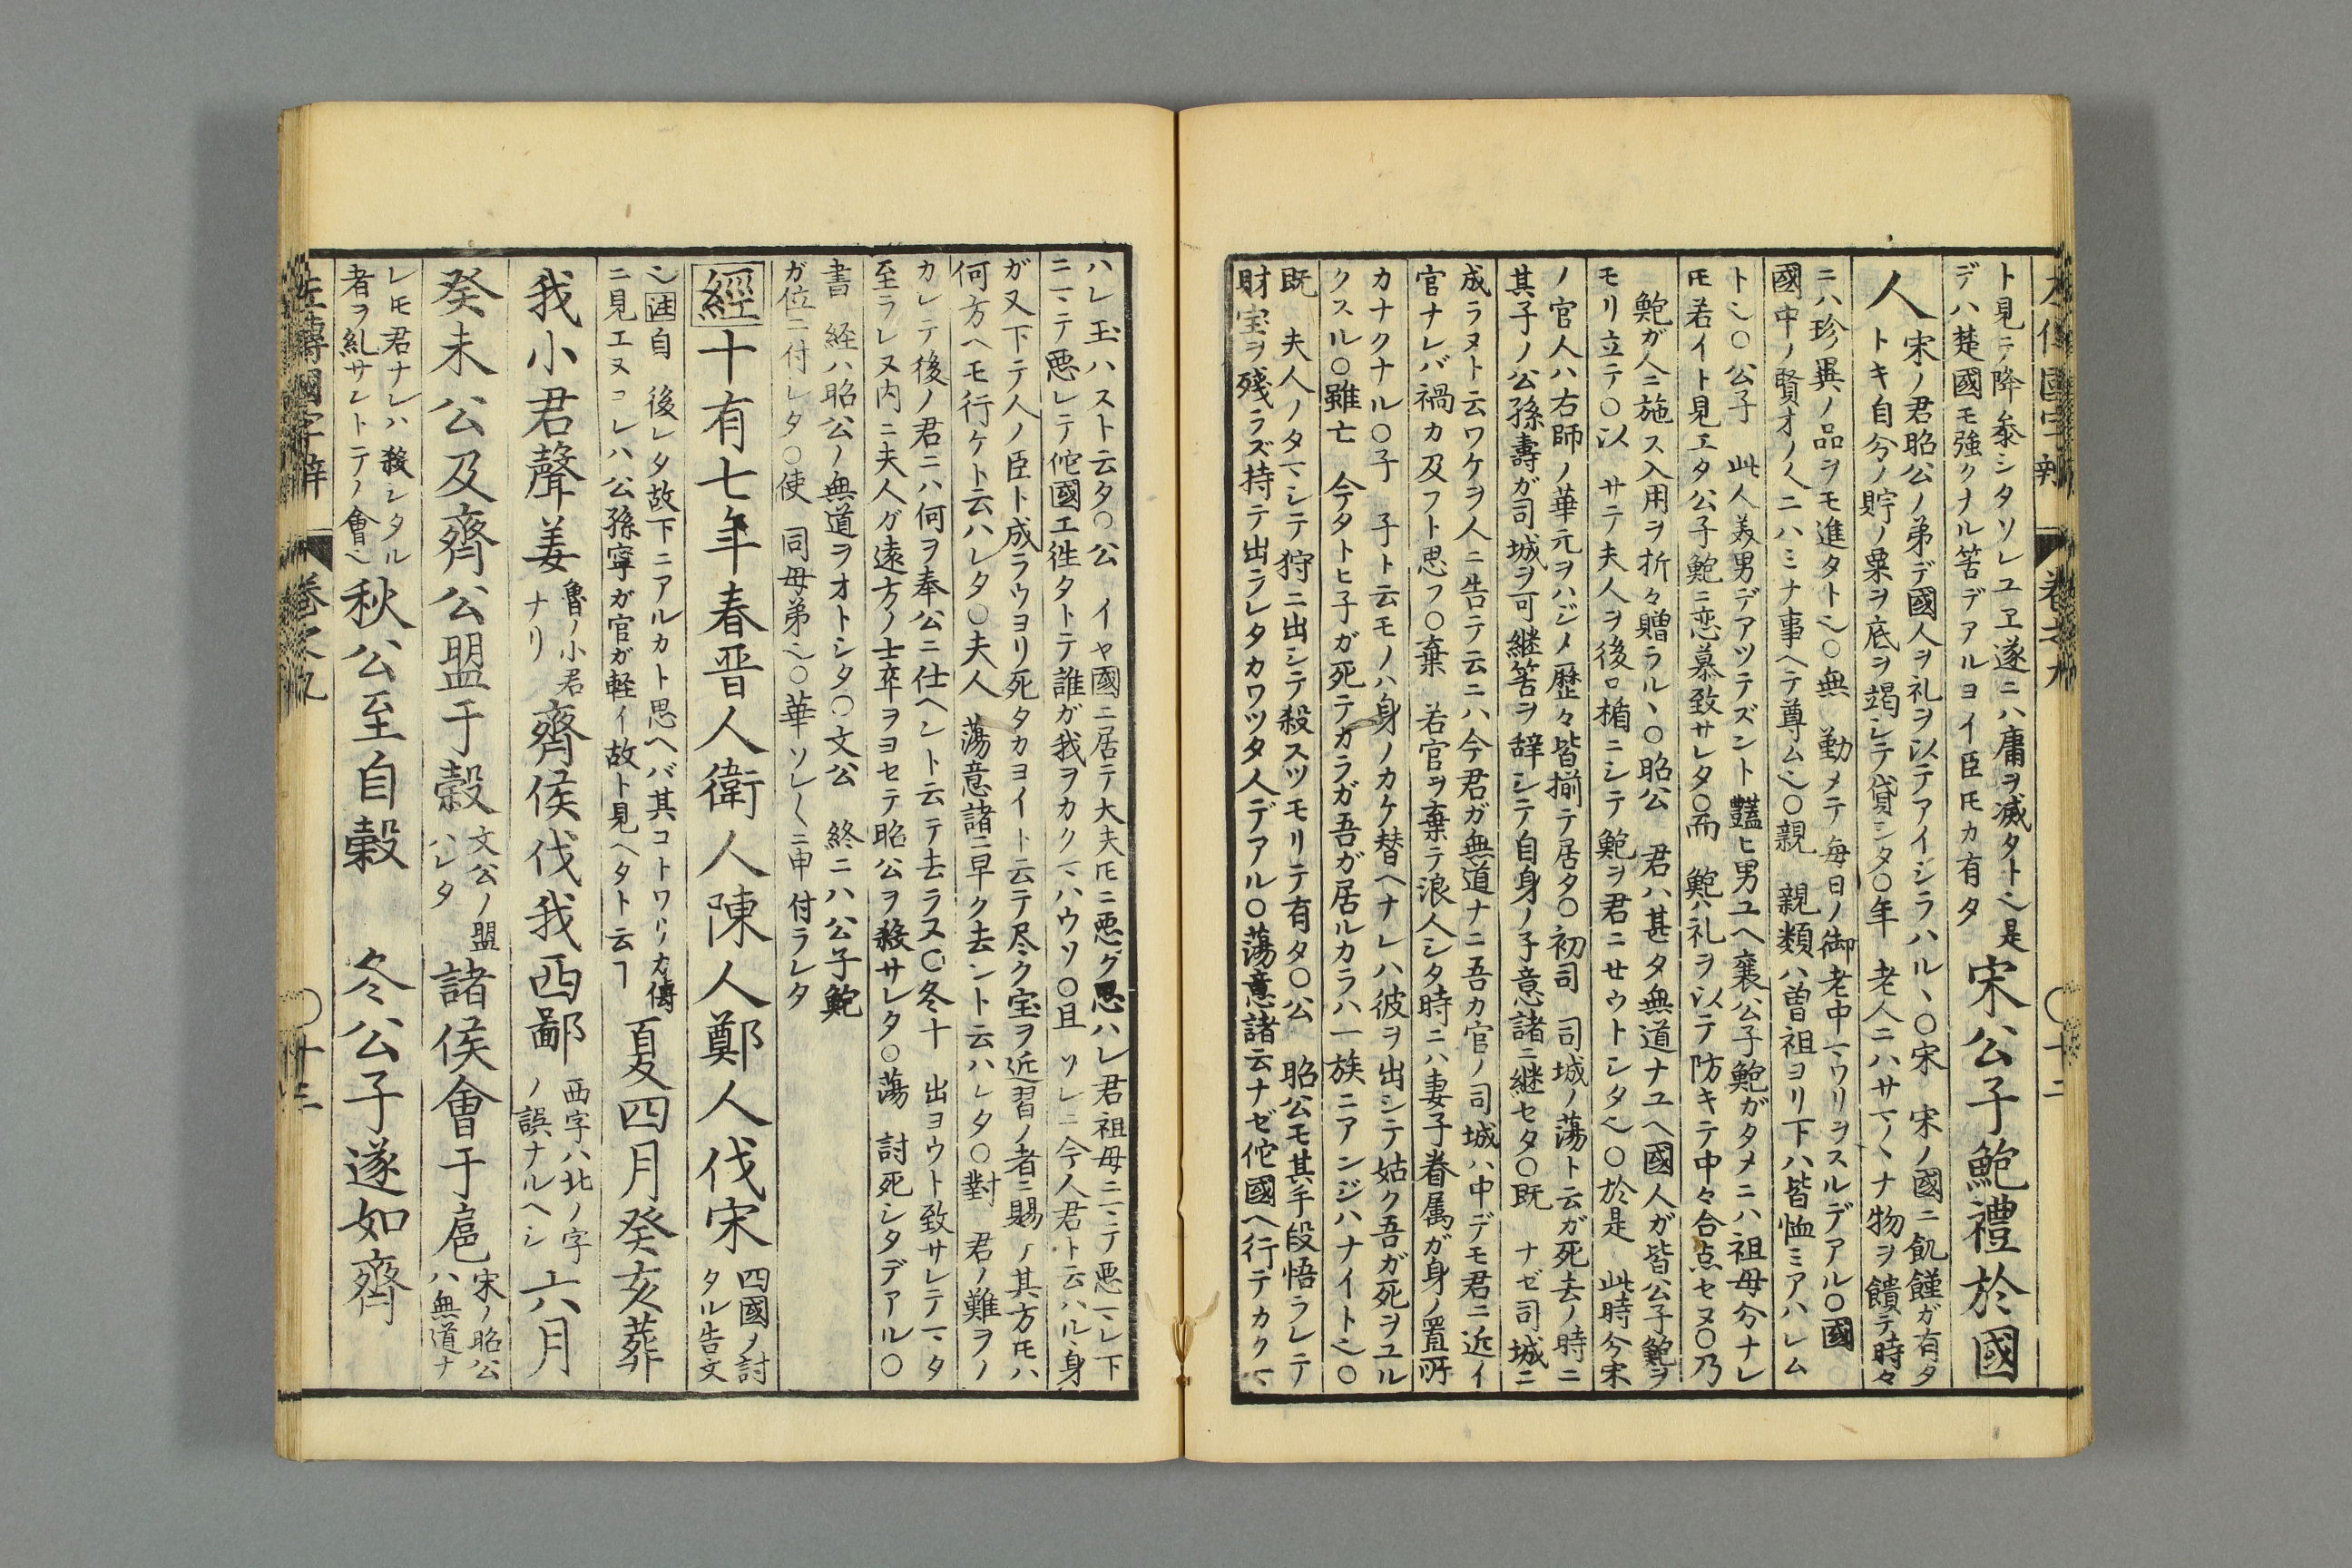 左傳國字辯 巻之九 〇十二
ト見ニノ降参シタソレユヱ遂ニハ庸ヲ滅タト〻是
デハ楚國モ強クナル筈デアルヨイ臣𪜈カ有タ
宋公子鮑禮於國
人
宋ノ君昭公ノ弟デ國人ヲ礼ヲ以テアイシラハル、〇宋 宋ノ國ニ飢饉ガ有タ
トキ自分ノ貯ノ粟ヲ底ヲ竭シテ貸シタ〇年 老人ニハサマ〱ナ物ヲ饋テ時々
ニハ珍異ノ品ヲモ進タト〻〇無 勤メテ毎日ノ御老中マワリヲスルデアル〇國
國中ノ賢才ノ人ニハミナ事ヘテ尊ム〻〇親 親類ハ曽祖ヨリ下ハ皆恤ミアハレム
ト〻〇公子 此人美男デアツテズント豔ヒ男ユヘ襄公子鮑ガタメニハ祖母分ナレ
𪜈若イト見エタ公子鮑ニ恋慕致サレタ〇而 鮑ハ礼ヲ以テ防キテ中々合点セヌ〇乃
鮑ガ人ニ施ス入用ヲ折々贈ラル、〇昭公 君ハ甚タ無道ナユヘ國人ガ皆公子鮑ヲ
モリ立テ〇以 サテ夫人ヲ後ロ楯ニシテ鮑ヲ君ニセウトシタ〻〇於是 此時今宋
ノ官人ハ右師ノ華元ヲハジメ歴々皆揃テ居タ〇初司 司城ノ蕩ト云ガ死去ノ時ニ
其子ノ公孫壽ガ司城ヲ可継筈ヲ辞シテ自身ノ子意諸ニ継セタ〇既 ナゼ司城ニ
成ラヌト云ワケヲ人ニ告テ云ニハ今君ガ無道ナニ吾カ官ノ司城ハ中デモ君ニ近イ
官ナレバ禍カ及フト思フ〇棄 若官ヲ棄テ浪人シタ時ニハ妻子眷属ガ身ノ置所
カナクナル〇子 子ト云モノハ身ノカケ替ヘナレハ彼ヲ出シテ姑ク吾ガ死ヲユル
クスル〇雖亡 今タトヒ子ガ死テカラガ吾ガ居ルカラハ一族ニアンジハナイト〻〇
既 夫人ノタマシテ狩ニ出シテ殺スツモリテ有タ〇公 昭公モ其手段悟ラレテ
財宝ヲ残ラズ持テ出ラレタカワツタ人デアル〇蕩意諸云ナゼ佗國ヘ行テカクマ
ハレ玉ハスト云タ〇公 イヤ國ニ居テ大夫𪜈ニ悪グ思ハレ君祖母ニマテ悪マレ下
ニマテ悪レテ佗國エ徃タトテ誰が我ヲカクマハウソ〇且 ソレニ今人君ト云ハル身
ガ又下テ人ノ臣ト成ラウヨリ死タカヨイト云テ尽ク宝ヲ近習ノ者ニ賜ソ其方𪜈ハ
何方ヘモ行ケト云ハレタ〇夫人 蕩意諸ニ早ク去ント云ハレタ〇對 君ノ難ヲノ
カレテ後ノ君ニハ何ヲ奉公ニ仕ヘント云テ去ラヌ〇冬十 出ヨウト致サレテマタ
至ラレヌ内ニ夫人ガ遠方ノ士卒ヲヨセテ昭公ヲ殺サレタ〇蕩 討死シタデアル〇
書 経ハ昭公ノ無道ヲオトシタ〇文公 終ニハ公子鮑
ガ位ニ付レタ〇使 同母弟〻〇華 ソレ〱ニ申付ラレタ
經十有七年春晋人衛人陳人鄭人伐宋
四國ノ討
タル告文
〻注自 後レタ故下ニアルカト思ヘバ其コトワリカ傳
ニ見エヌコレハ公孫寧ガ官ガ軽イ故ト見ヘタト云ヿ
夏四月癸亥葬
我小君聲姜
魯ノ小君
ナリ
齊侯伐我西鄙
西字ハ北ノ字
ノ誤ナルヘシ
六月
癸未公及齊公盟于穀
文公ノ盟
ハレタ
諸侯會于扈
宋ノ昭公
ハ無道ナ
レ𪜈君ナレハ殺シタル
者ヲ糺サントテノ會〻
秋公至自穀 冬公子遂如齊
左傳國字辯 巻之九 〇十三